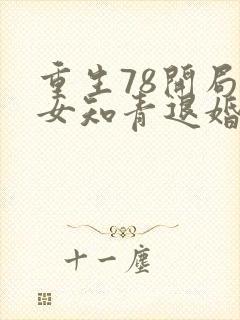 重生78开局
女知青退婚
十一尘